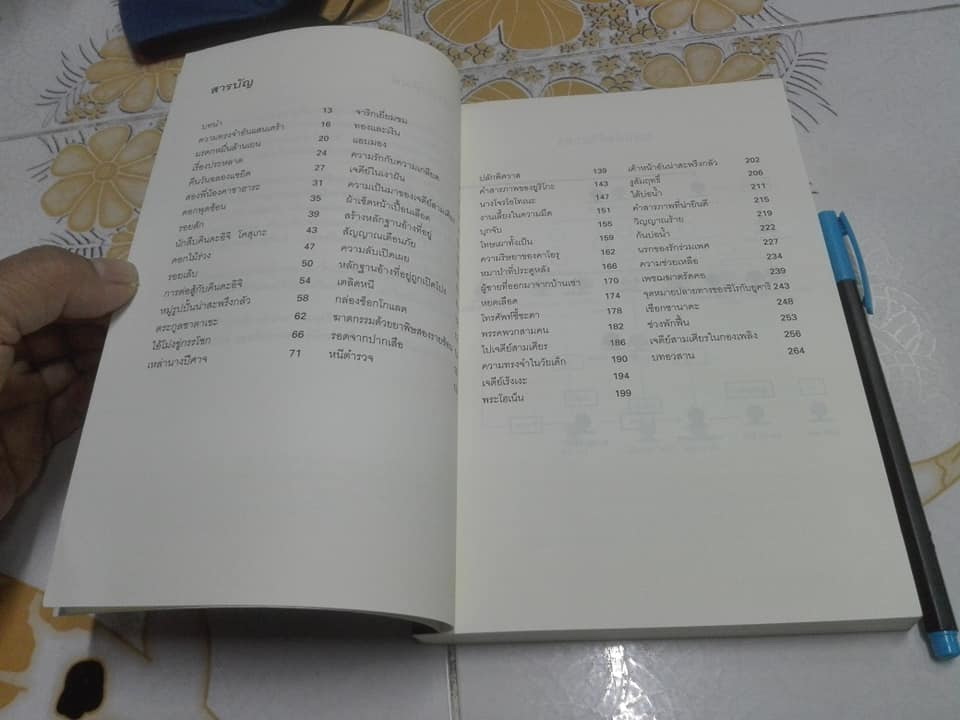 สารบัญ
บทนำ 13
ความทรงจำอันแสนเศร้า 16
มรดกหมื่นล้านเยน 20
เรื่องประหลาด 24
คืนวันฉลองแซยิด 27
สองพี่น้องคาซาฮาระ 31
ดอกพุดซ้อน 35
รอยสัก 39
นักสืบคินดะอิจิ โคสุเกะ 43
ดอกไม้ร่วง 47
รอยเล็บ 50
การต่อสู้กับคินดะอิจิ 54
หมู่รูปปั้นน่าสะพรึงกลัว 58
ตระกูลซาตาเขะ 62
ไอ้โม่งขู่กรรโชก 66
เหล่านางปีศาจ 71
จาริกเยี่ยมชม
ทองและเงิน
แอบมอง
ความรักกับความเกลียด
เจดีย์ในเงาฝัน
ความเป็นมาของเจดีย์สามเสียง
ผ้าเช็ดหน้าเปื้อนเลือด
สร้างหลักฐานอ้างที่อยู่
สัญญาณเตือนภัย
ความลับเปิดเผย
หลักฐานอ้างที่อยู่ถูกเปิดโปง
เตลิดหนี
กล่องช็อกโกแลต
ฆาตกรรมด้วยยาพิษสองราย
รอดจากปากเสือ
หนีตำรวจ
ปลักพิศวาส 139
คำสารภาพของยูริโกะ 143
นางโจรโยโกเนะ 147
งานเลี้ยงในความมืด 151
บุกจับ 155
โทษเผาทั้งเป็น 159
ความริษยาของคาโอรุ 162
หมาป่าที่ประตูหลัง 166
ผู้ชายที่ออกมาจากบ้านเช่า 170
หยดเลือด 174
โทรศัพท์ชี้ชะตา 178
พรรคพวกสามคน 182
ไปเจดีย์สามเศียร 186
ความทรงจำในวัยเด็ก 190
เจดีย์เร้งเงะ 194
พระโฮเน็น 199
เค้าหน้าอันน่าสะพรึงกลัว 202
งูสัมฤทธิ์ 206
ใต้บ่อน้ำ 211
คำสารภาพที่น่ายินดี 215
วิญญาณร้าย 219
ก้นบ่อน้ำ 222
นรกของรักร่วมเพศ 227
ความช่วยเหลือ 234
เพชฌฆาตรัดคอ 239
จุดหมายปลายทางของชิโรกับยูคาริ 243
เชือกซานาดะ 248
ช่วงพักฟื้น 253
เจดีย์สามเศียรในกองเพลิง 256
บทอวสาน 264